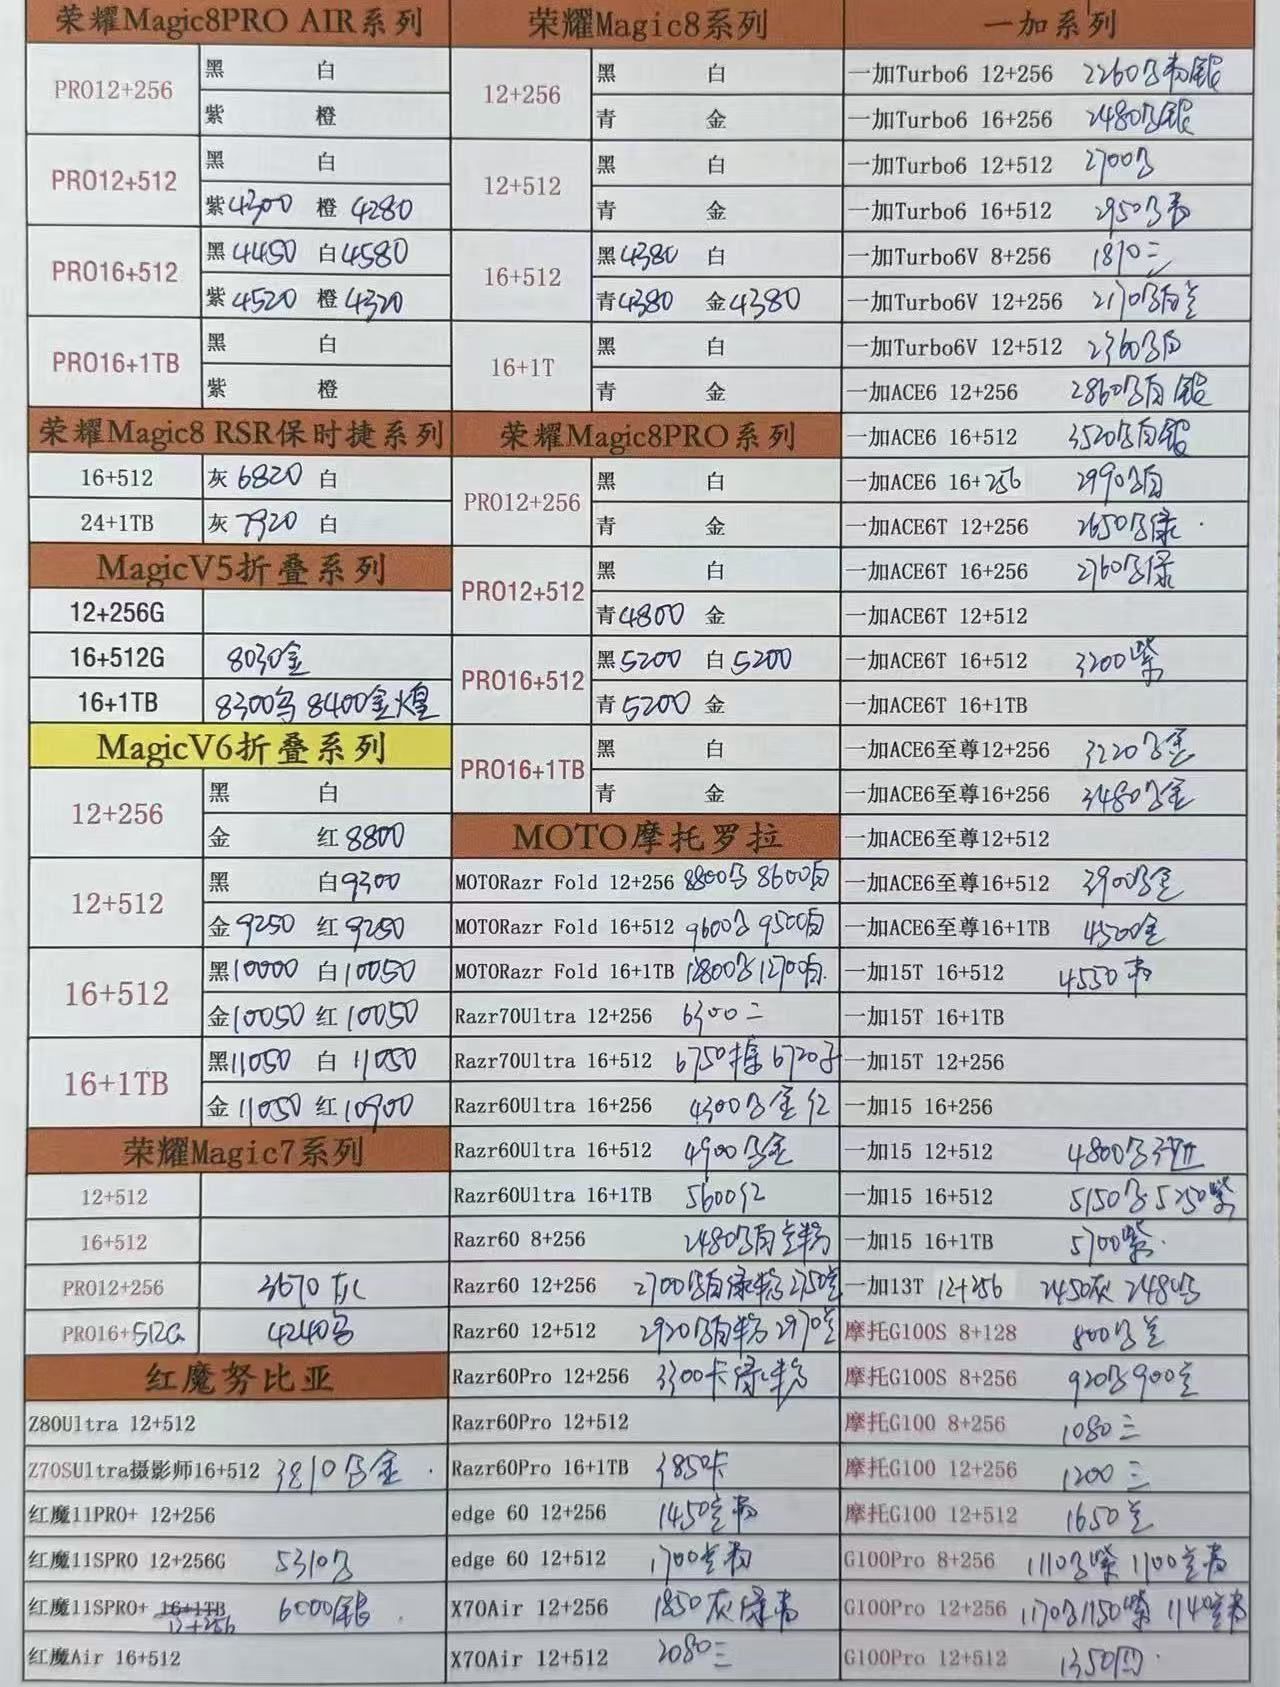 荣耀Magic8PRO AIR系列
PRO12+256
黑 白
紫 橙
PRO12+512
黑 白
紫4300 橙 4280
PRO16+512
黑4450 白4580
紫4520 橙4320
PRO16+1TB
黑 白
紫 橙
荣耀Magic8 RSR保时捷系列
16+512 灰 6820 白
24+1TB 灰 7920 白
MagicV5折叠系列
12+256G
16+512G 8030金
16+1TB 8300 8400金
MagicV6折叠系列
12+256
黑 白
金 红8800
12+512
黑 白9300
金9250 红9250
16+512
黑10000 白10050
金10050 红10050
16+1TB
黑11050 白 11050
金 11050 红10900
荣耀Magic7系列
12+512
16+512
PRO12+256 3670灰
PRO16+512G 4240
红魔努比亚
Z80Ultra 12+512
Z70SUltra摄影师16+512 3810 金
红魔11PRO+ 12+256
红魔11SPRO 12+256G 5310
红魔11SPRO+ 16+1TB 12+256 6000银
红魔Air 16+512
荣耀Magic8系列
12+256
黑 白
青 金
12+512
黑 白
青 金
16+512
黑4380 白
青4380 金4380
16+1T
黑 白
青 金
荣耀Magic8PRO系列
PRO12+256
黑 白
青 金
PRO12+512
黑 白
青4800 金
PRO16+512
黑5200 白5200
青5200 金
PRO16+1TB
黑 白
青 金
MOTO摩托罗拉
MOTORazr Fold 12+256 8800 8600白
MOTORazr Fold 16+512 9600 9500白
MOTORazr Fold 16+1TB 12800 12700白
Razr70Ultra 12+256 6300二
Razr70Ultra 16+512 6750 6720
Razr60Ultra 16+256 4300 金红
Razr60Ultra 16+512 4900 金
Razr60Ultra 16+1TB 5600红
Razr60 8+256 2480 白兰粉
Razr60 12+256 2700 白绿粉 2750兰
Razr60 12+512 2920 白粉 2970兰
Razr60Pro 12+256 3300卡绿粉
Razr60Pro 12+512
Razr60Pro 16+1TB 3850卡
edge 60 12+256 1450兰青
edge 60 12+512 1700兰青
X70Air 12+256 1850灰绿青
X70Air 12+512 2080三
一加系列
一加Turbo6 12+256 2260 青银
一加Turbo6 16+256 2480 银
一加Turbo6 12+512 2700
一加Turbo6 16+512 2950 青
一加Turbo6V 8+256 1810三
一加Turbo6V 12+256 2170 白兰
一加Turbo6V 12+512 2360 白
一加ACE6 12+256 2860 白银
一加ACE6 16+512 3520 白银
一加ACE6 16+256 2990 白
一加ACE6T 12+256 2650 绿
一加ACE6T 16+256 2760 绿
一加ACE6T 12+512
一加ACE6T 16+512 3200紫
一加ACE6T 16+1TB
一加ACE6至尊12+256 3220 金
一加ACE6至尊16+256 3480 金
一加ACE6至尊12+512
一加ACE6至尊16+512 3900 金
一加ACE6至尊16+1TB 4500金
一加15T 16+512 4550 青
一加15T 16+1TB
一加15T 12+256
一加15 16+256
一加15 12+512 4800
一加15 16+512 5150 5250紫
一加15 16+1TB 5700紫
一加13T 12+256 2450灰 2480
摩托G100S 8+128 800 兰
摩托G100S 8+256 920 900兰
摩托G100 8+256 1080三
摩托G100 12+256 1200三
摩托G100 12+512 1650兰
G100Pro 8+256 1110 紫 1100兰青
G100Pro 12+256 1170 1150紫 1140兰青
G100Pro 12+512 1350四